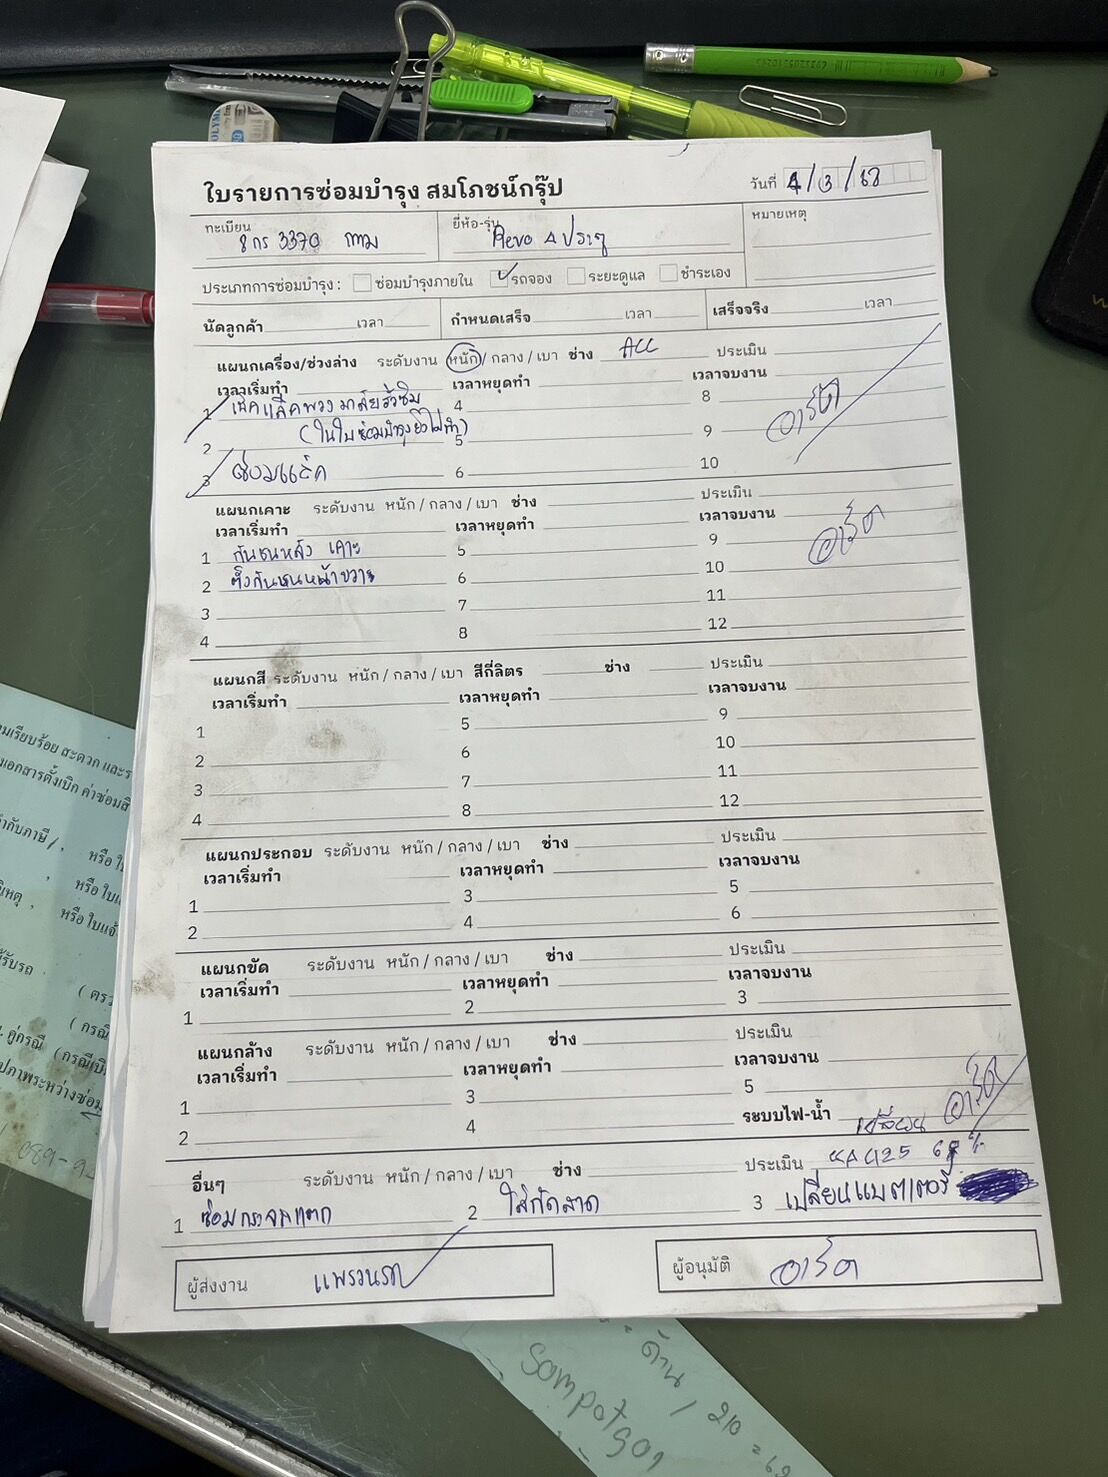 ใบรายการซ่อมบำรุง สมโภชน์กรุ๊ป
วันที่ 4/3/68
ทะเบียน 8กร 3370 กทม
ยี่ห้อ-รุ่น Revo 4 ประตู
หมายเหตุ
ประเภทการซ่อมบำรุง : ซ่อมบำรุงภายใน รถจอง ระยะดูแล ชำระเอง
นัดลูกค้า เวลา กำหนดเสร็จ เวลา เสร็จจริง เวลา
แผนกเครื่อง/ช่วงล่าง ระดับงาน หนัก / กลาง / เบา ช่าง ACC ประเมิน
เวลาเริ่มทำ เวลาหยุดทำ เวลาจบงาน
1 เช็คแล็คพวงมาลัยรั่วซึม 4 8
2 (ในใบซ่อมบำรุงยังไม่ทำ) 5 9
อาร์ต
3 ซ่อมแล็ค 6 10
แผนกเคาะ ระดับงาน หนัก / กลาง / เบา ช่าง ประเมิน
เวลาเริ่มทำ เวลาหยุดทำ เวลาจบงาน
1 กันชนหลัง เคาะ 5 9
อาร์ต
2 ดึงกันชนหน้าขวา 6 10
3 7 11
4 8 12
แผนกสี ระดับงาน หนัก / กลาง / เบา สีกี่ลิตร ช่าง ประเมิน
เวลาเริ่มทำ เวลาหยุดทำ เวลาจบงาน
1 5 9
2 6 10
3 7 11
4 8 12
แผนกประกอบ ระดับงาน หนัก / กลาง / เบา ช่าง ประเมิน
เวลาเริ่มทำ เวลาหยุดทำ เวลาจบงาน
1 3 5
2 4 6
แผนกขัด ระดับงาน หนัก / กลาง / เบา ช่าง ประเมิน
เวลาเริ่มทำ เวลาหยุดทำ เวลาจบงาน
1 2 3
แผนกล้าง ระดับงาน หนัก / กลาง / เบา ช่าง ประเมิน
เวลาเริ่มทำ เวลาหยุดทำ เวลาจบงาน
1 3 5
2 4 ระบบไฟ-น้ำ เปลี่ยน อาร์ต
อื่นๆ ระดับงาน หนัก / กลาง / เบา ช่าง ประเมิน
1 ซ่อมกระจกแตก 2 ใส่กัดลาด 3 เปลี่ยนแบตเตอรี่
ผู้ส่งงาน แพรวนภา
ผู้อนุมัติ อาร์ต
มเรียบร้อย สะดวก และร
เอกสารตั้งเบิก ค่าซ่อมสี
กำกับภาษี / , หรือ ใ
หรือ ใบแ
นเหตุ , หรือ ใบแจ้
รับรถ
( ตรว
( กรณี
. คู่กรณี ( กรณีเป็
ปภาพระหว่างซ่อม
089-9
ด้าน / 210
Sompotgo